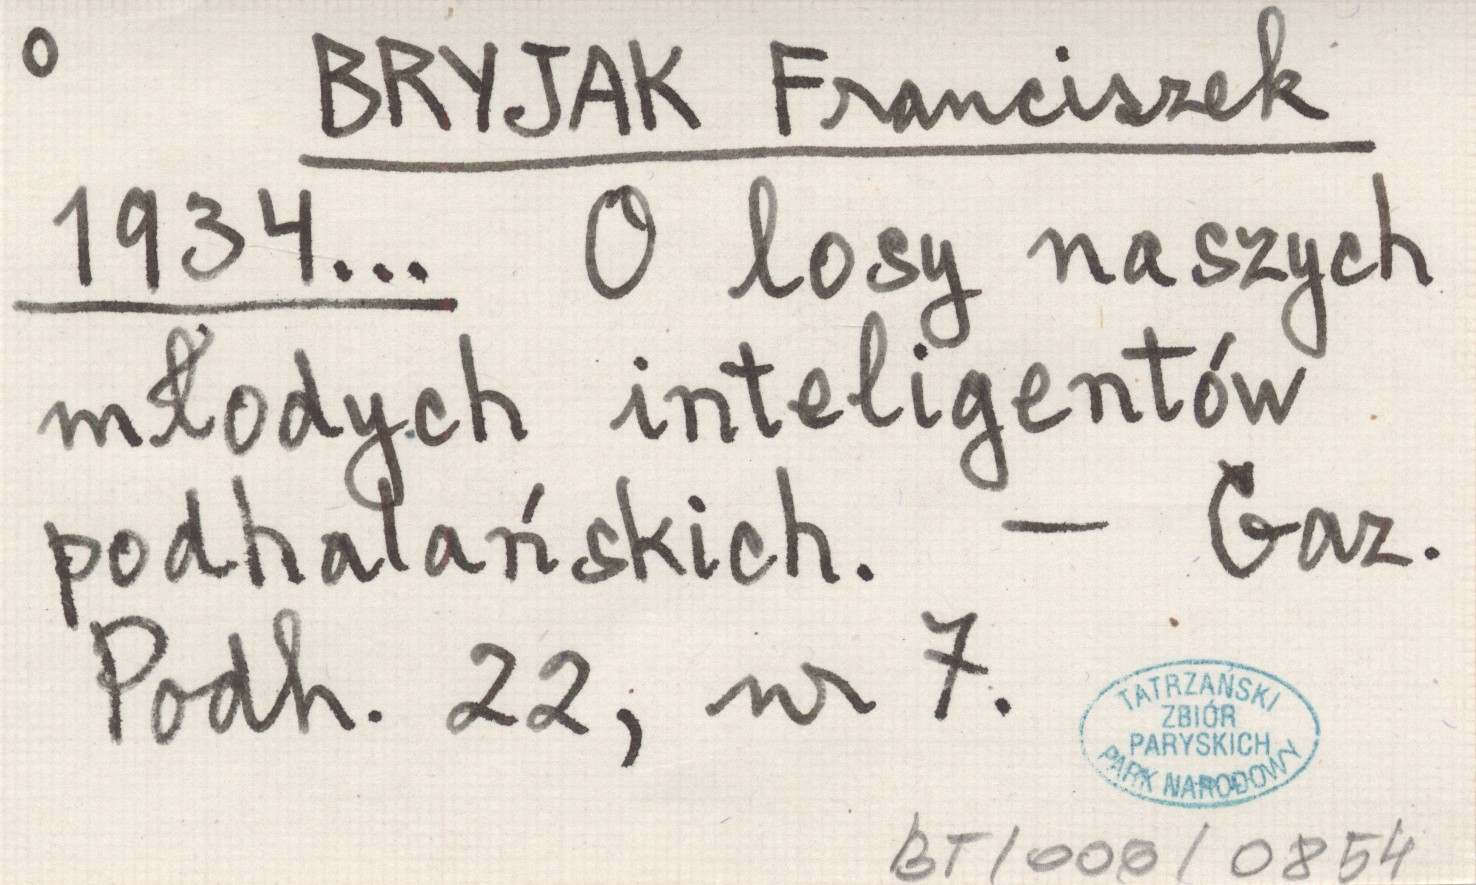 o BRYJAK Franciszek
1934... O losy naszych
młodych inteligentów
podhalańskich. — Gaz.
Podh. 22, nr 7.
TATRZAŃSKI
ZBIÓR
PARYSKICH
PARK NARODOWY
BT/000/0854